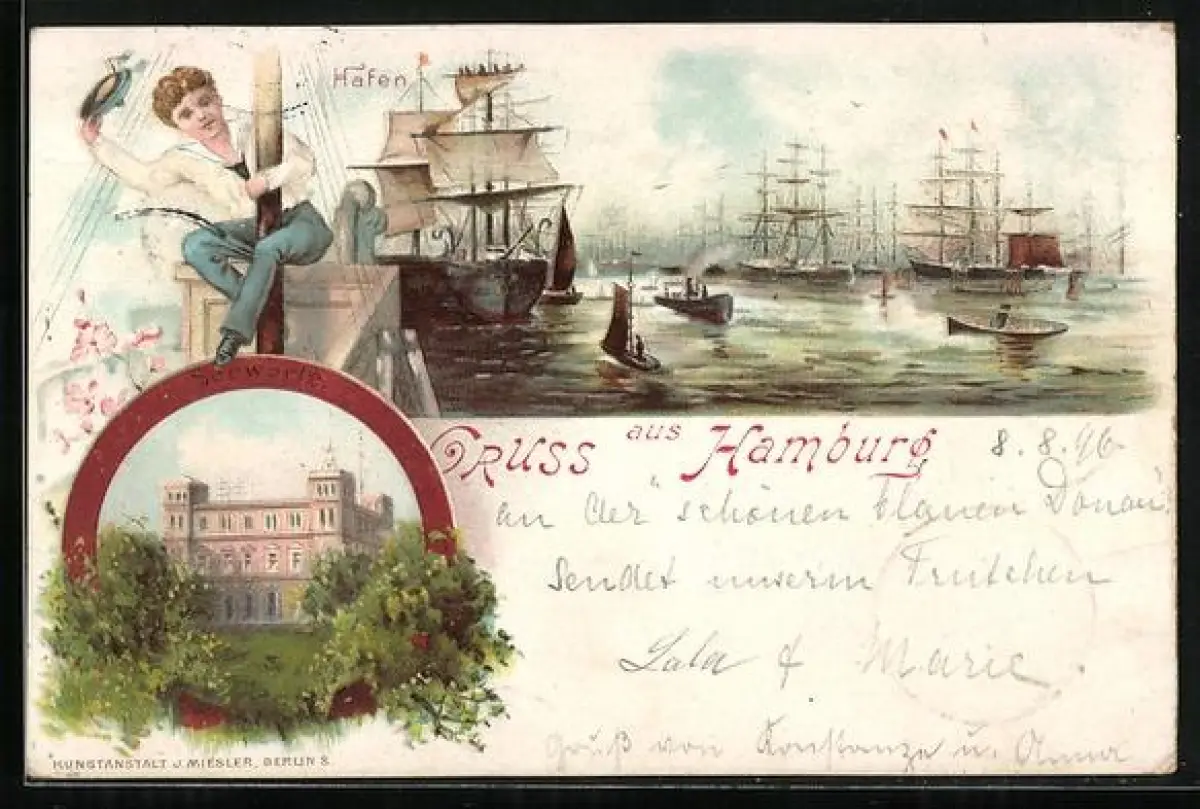 Hafen
Seewarte.
GRUSS aus Hamburg
8.8.96
an der "schönen blauen Donau"
Sendet unserm Trutchen
Lala & Marie.
Gruß von Konstanze u. Anna
KUNSTANSTALT J. MIESLER, BERLIN S.